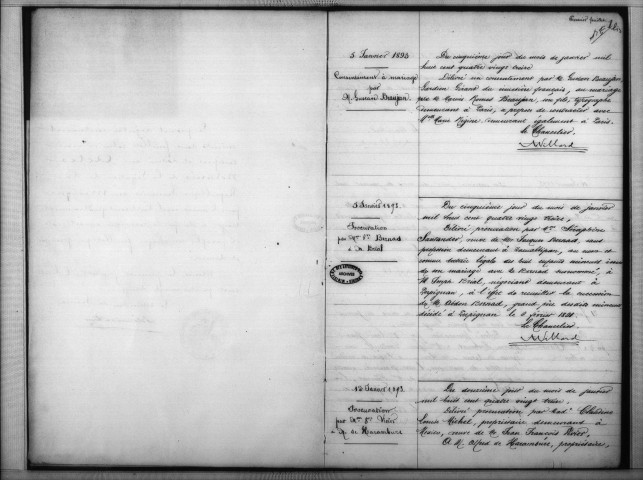 5 Janvier 1893
Consentement à mariage
par
M. Gustave Beaujan
Du cinquième jour du mois de janvier mil
huit cent quatre vingt treize
Délivré un consentement par M. Gustave Beaujan,
Gardien Gérant du cimetière français, au mariage
que M. Louis Beaujan, son fils, typographe
demeurant à Paris, a propos de contracter avec
Melle Marie Régine, demeurant également à Paris.
Le Chancelier,
5 Janvier 1893.
Procuration
par Mme Ve Bernad
à M. Brial
Du cinquième jour du mois de janvier
mil huit cent quatre vingt treize,
Délivré procuration par Mme Séraphine
Santander, veuve de M. Jacques Bernad, sans
profession demeurant à, au nom et
comme tutrice légale des trois enfants mineurs issus
de son mariage avec le Bernad susnommé, à
M. Joseph Brial, négociant demeurant à
Perpignan, à l'effet de recueillir la succession
de M. Bernad, grand père desdits mineurs
décédé à Perpignan le février
Le Chancelier,
12 Janvier 1893.
Procuration
par Mme Ve Vivier
à M. de Haramboure
Du douzième jour du mois de janvier
mil huit cent quatre vingt treize,
Délivré procuration par Made Claudine
Louise Michel, propriétaire demeurant à
Mexico, veuve de M. Jean François Vivier,
à M. Alfred de Haramboure, propriétaire,